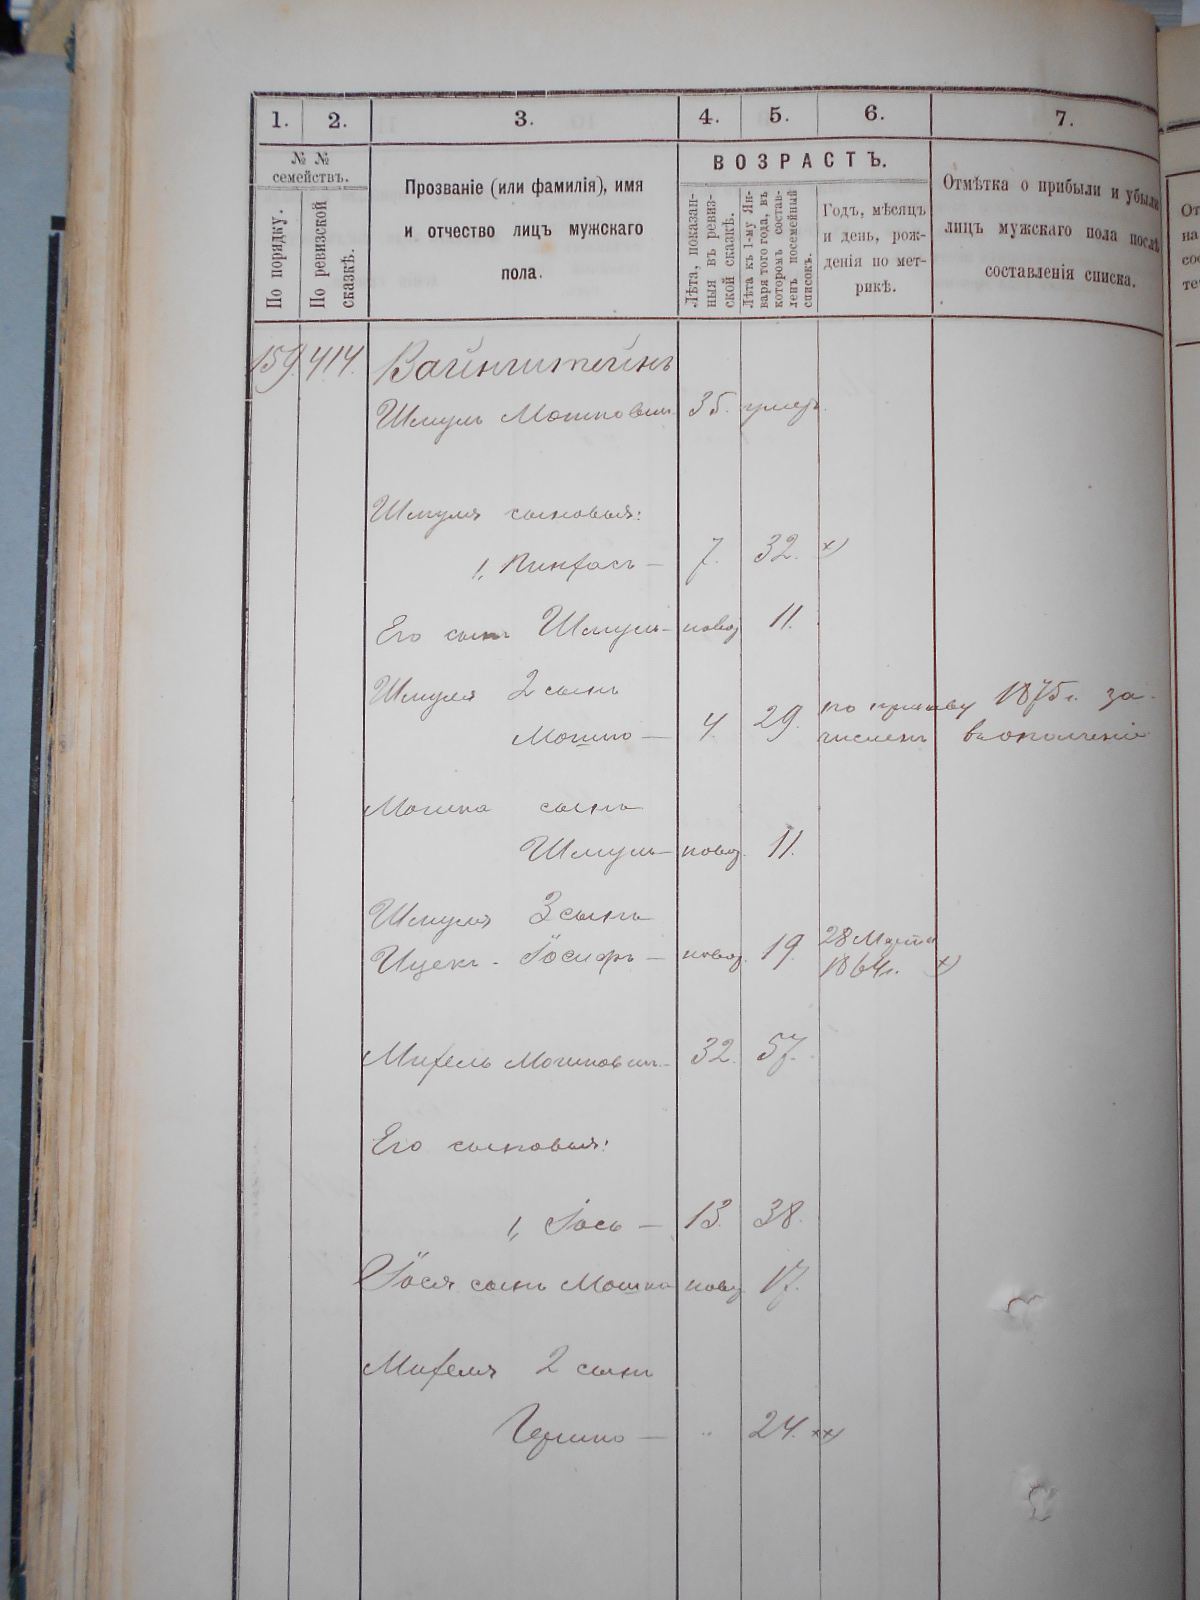 1. 2. 3. 4. 5. 6. 7.
№ №
семействъ.
По порядку.
По ревизской
сказкѣ.
Прозваніе (или фамилія), имя
и отчество лицъ мужскаго
пола.
ВОЗРАСТЪ.
Лѣта, показан-
ныя въ ревиз-
ской сказкѣ.
Лѣта къ 1-му Ян-
варя того года, въ
которомъ состав-
ленъ посемейный
списокъ.
Годъ, мѣсяцъ
и день, рож-
денія по мет-
рикѣ.
Отмѣтка о прибыли и убыли
лицъ мужскаго пола послѣ
составленія списка.
159. 414. Вайнштейнъ
Шмуль Мошковичъ 35. умеръ.
Шмуля сыновья:
1, Пинхасъ — 7. 32. х)
Его сынъ Шмуль — новор 11.
Шмуля 2 сынъ
Мошко — 4. 29. по призыву 1875 г. за-
численъ въ ополченіе
Мошка сынъ
Шмуль — новор. 11.
Шмуля 3 сынъ
Ицекъ - Іосифъ — новор. 19. 28 Марта
1864 г. х)
Михель Мошковичъ — 32. 57.
Его сыновья:
1, Іось — 13. 38.
Іося сынъ Мошко новор 17.
Михеля 2 сынъ
Гершко — " 24. хх)
От
на
со
те